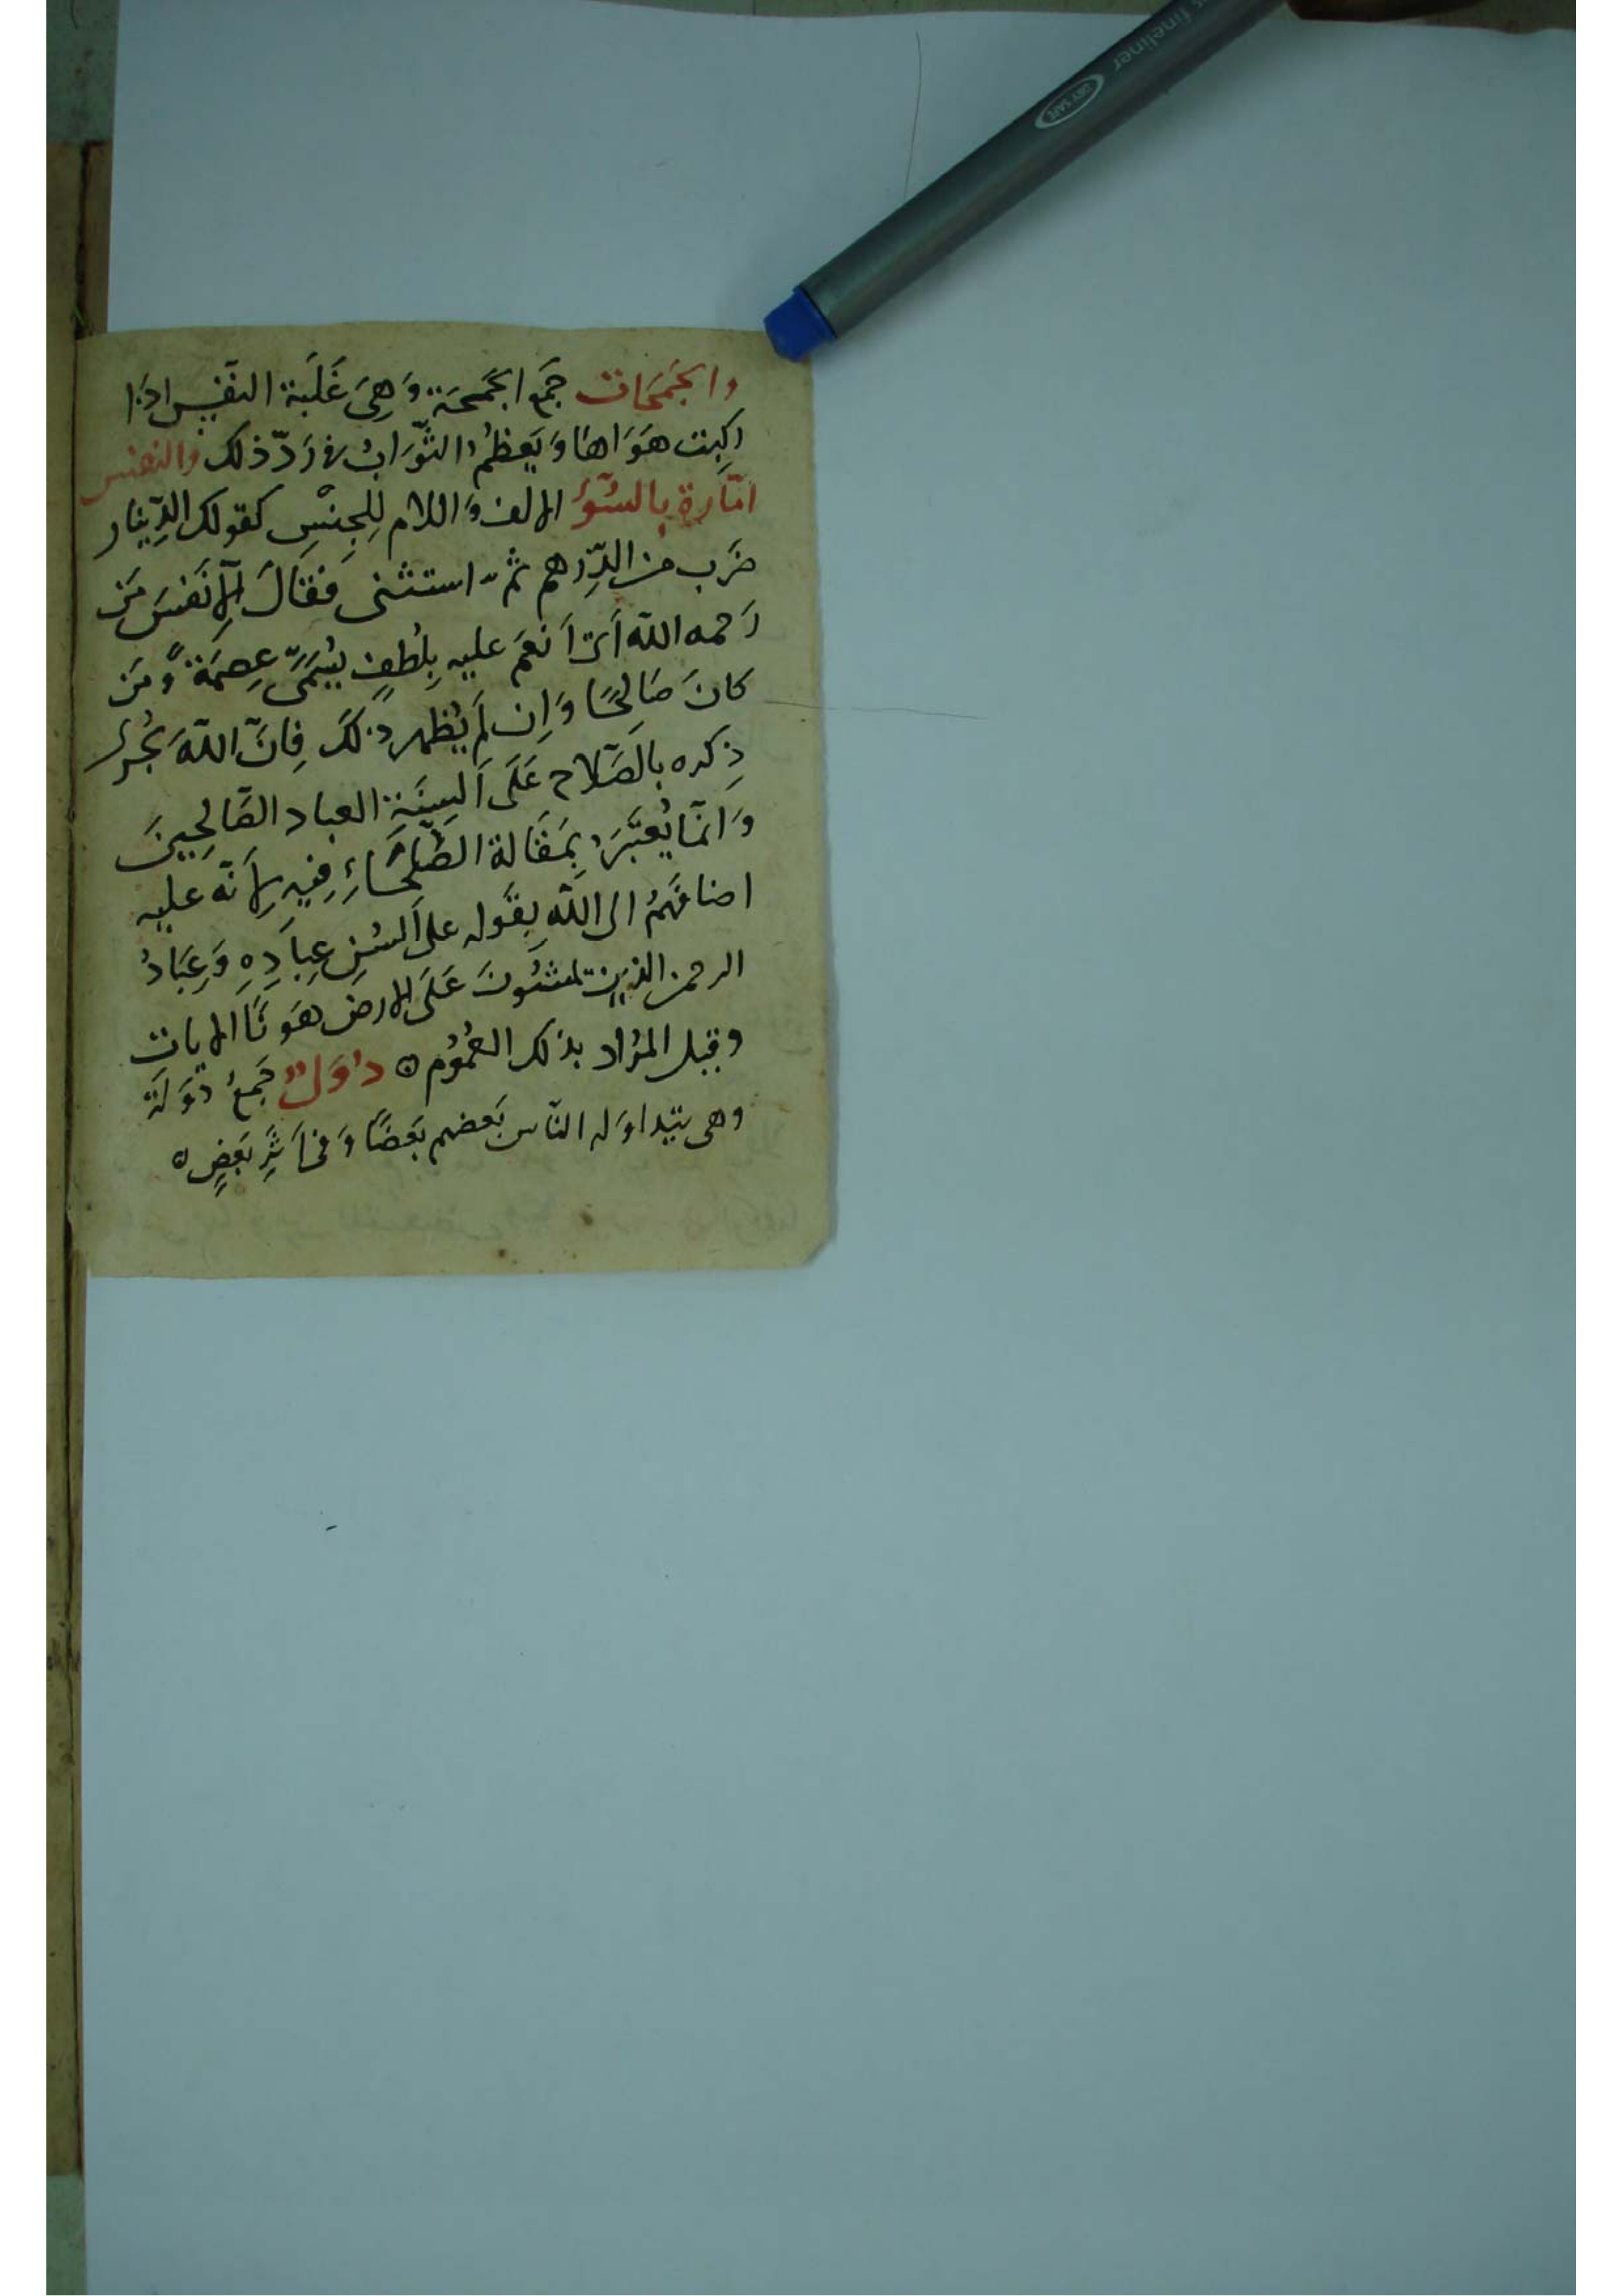 fineliner
DRY SAFE
والجَمَحَات جَمع الجَمحَة وَهِىَ غَلَبة النّفسِ اذَا
ركبت هَوَاهَا وَيَعظمُ الثّوَابُ فى رَدّ ذلك والنفس
امّارة بالسّوُء الالف وَاللام لِلجِنْسِ كقولك الدّينار
ضَرب من الدّرهم ثم استثنى فَقالَ الّا نَفسَ مَن
رَحمه الله اَىْ اَنعَمَ عليه بِلُطفٍ يُسَمّى عِصمَةً وَمَن
كانَ صَالِحًا وَاِن لَم يُظهر ذلكَ فِانّ اللهَ يُجرى
ذِكره بالصّلاح عَلَى اَلسِنَة العباد الصّالِحِينَ
وَانّمَا يُعتَبَرَ بِمَقَالة الصُّلَحَاءِ فِيهِ لِاَنّه عليه
اضافَهُم الى اللهِ بِقَوله على اَلسُنِ عِبَادِهِ وَعِبَادُ
الرحمن الذين يمشُونَ عَلَى الارض هَونًا الايات
وقيل المرَاد بذلك العُمُوم ه دُوَلٌ جَمعُ دَوَلَة
وهى يتداوَله النّاس بَعضهم بَعضًا وَفى اَثَرِ بَعضٍ ه